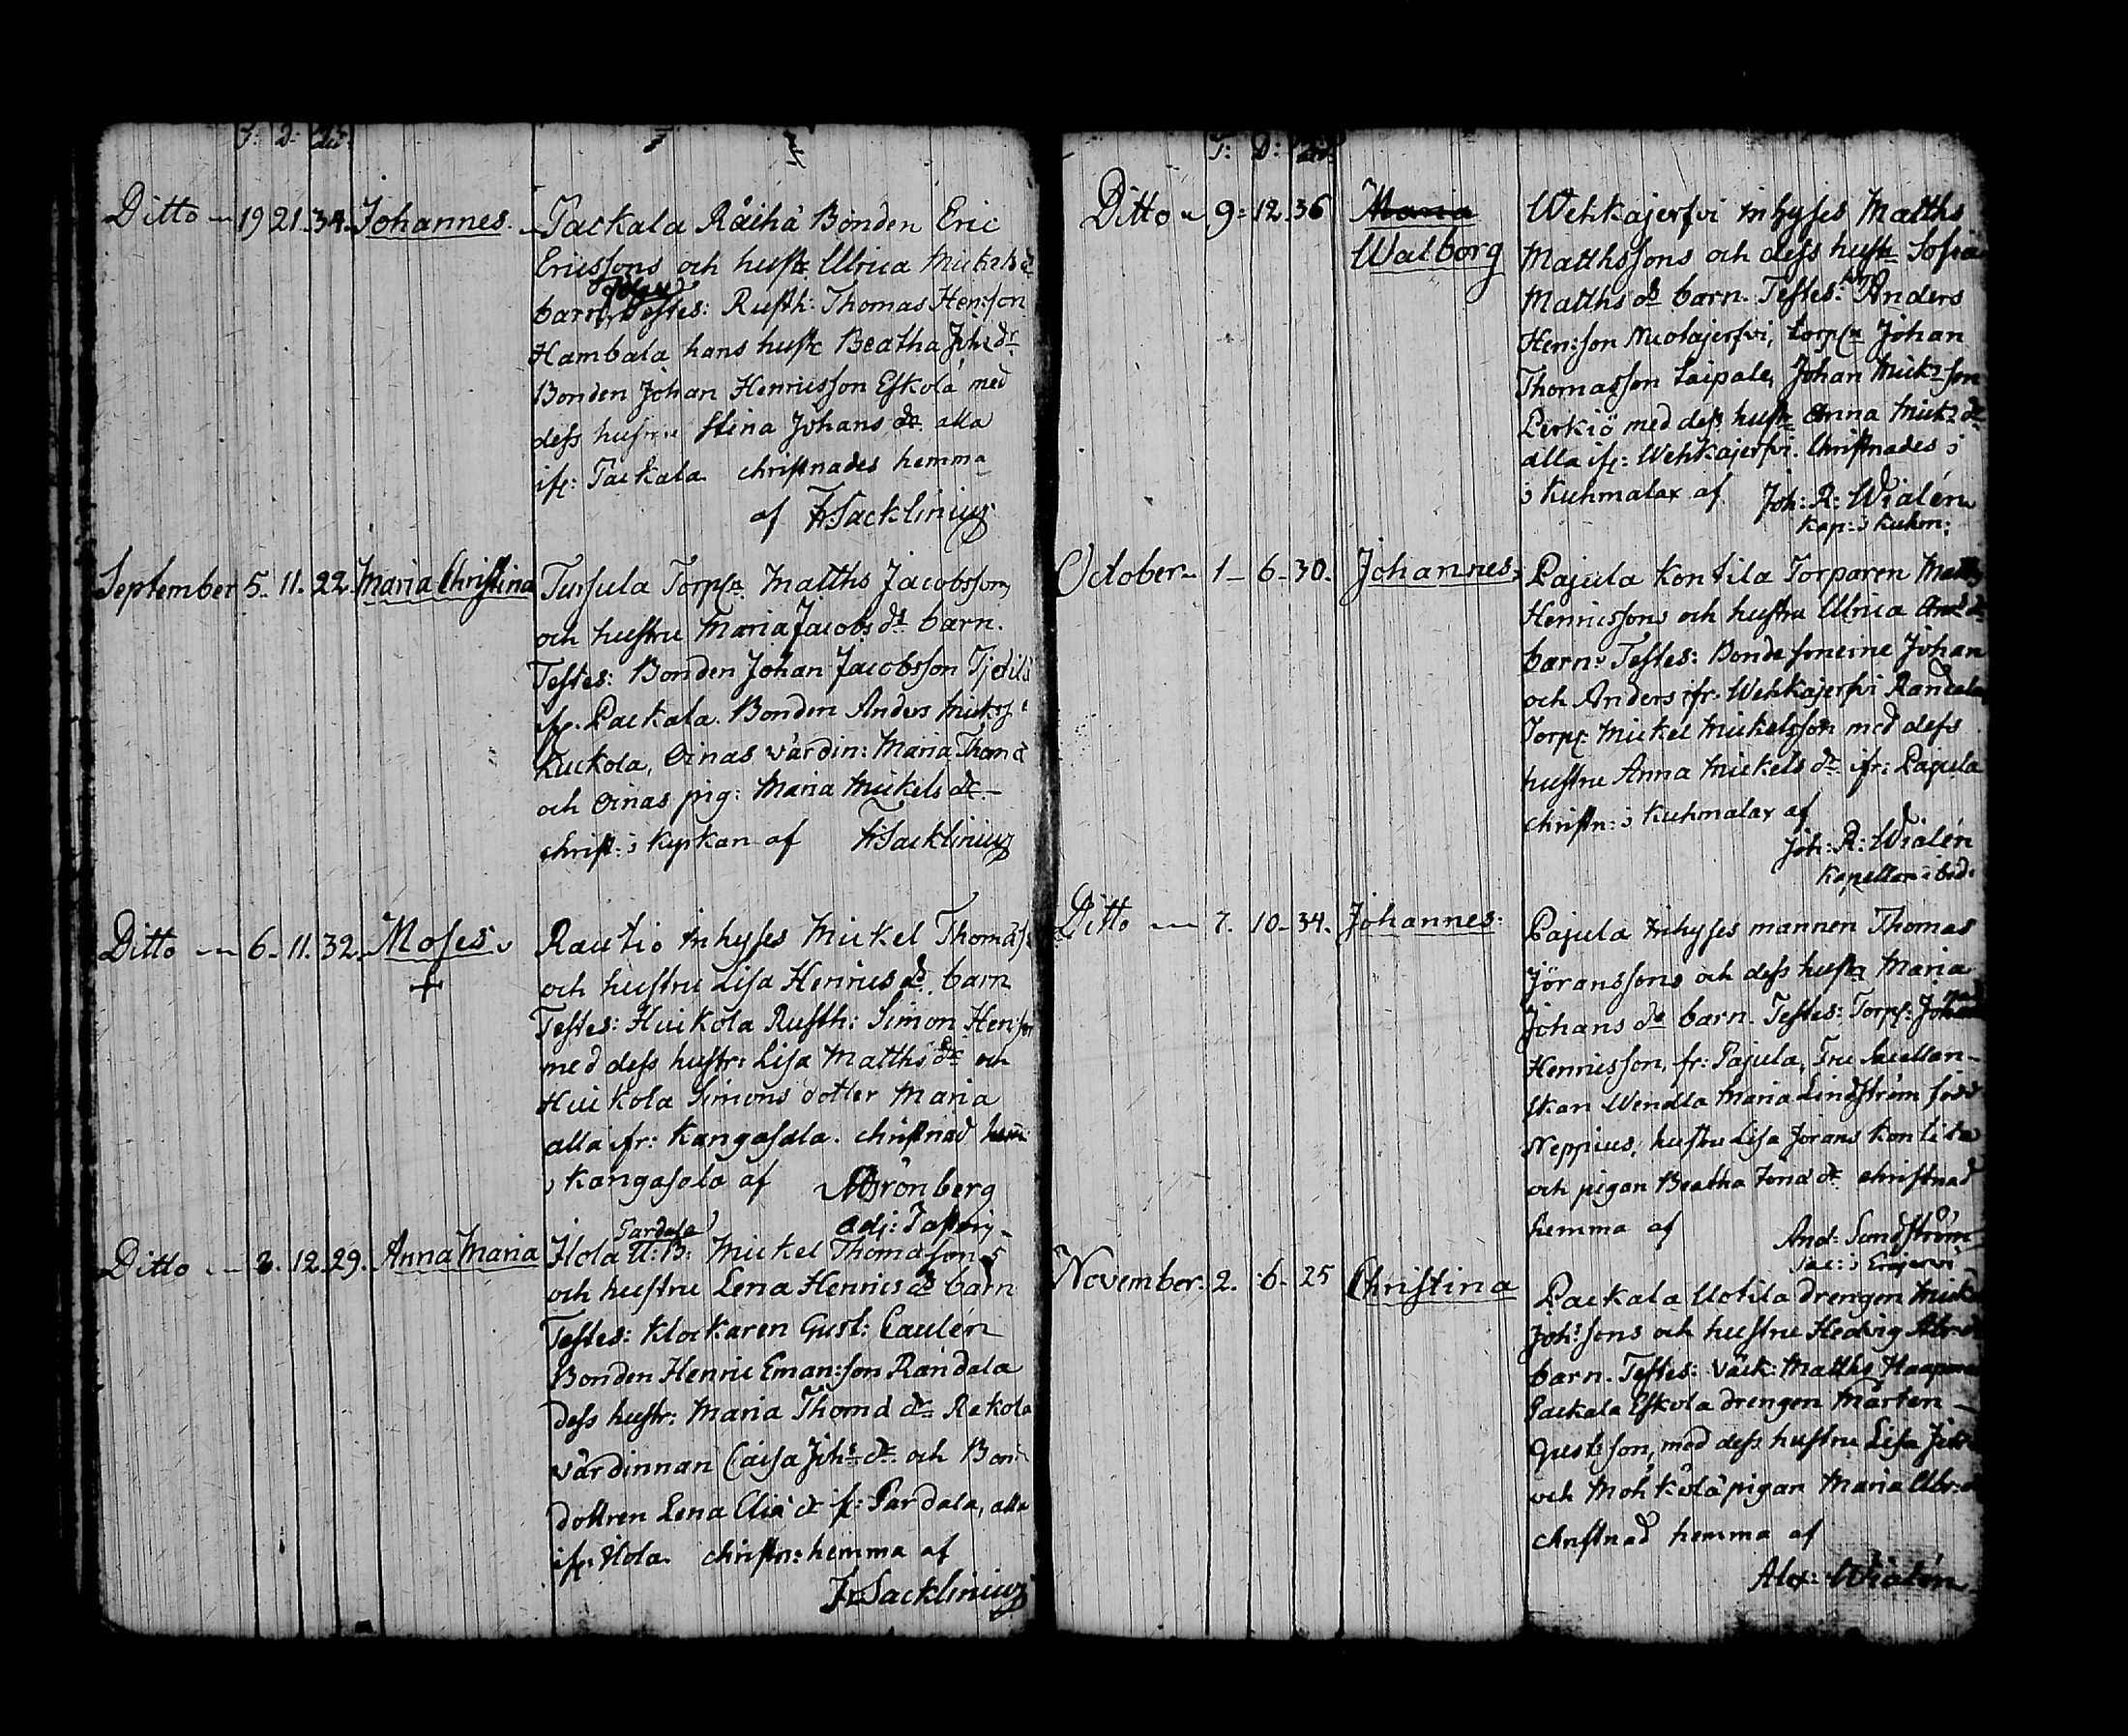 F: D: ålr:
Ditto 19 21. 34. Johannes. Packala Räihä Bonden Eric
Ericssons och hustr Ulrica Mickelsdr
barn, Testes: Rusth: Thomas Hen:son
Hambala hans hustr Beatha Joh:dr
Bonden Johan Henricsson Eskola med
dess hustru Stina Johans dr. alla
ifr: Packala christnades hemma
af FrSacklinius
September 5. 11. 22. Maria Christina Tursula Torp:n Matths Jacobsson
och hustru Maria Jacobs dr barn.
Testes: Bonden Johan Jacobsson
ifr. Packala. Bonden Anders Micks
Kuckola, Oinas värdin: Maria Thom d
och Oinas pig: Maria Mickels dr.
christ: i Kyrkan af FrSacklinius
Ditto 6. 11. 32. Moses. Rautio Inhyses Mickel Thomas
+ och hustru Lisa Henrics dr. barn
Testes: Huikola Rusth: Simon Hen:son
med dess hustr: Lisa Matths dr och
Huikola Simons dotter Maria
alla ifr: Kangasala. christnad
i Kangasala af Grönberg
adj: Pastor
Pardala
Ditto 8. 12. 29. Anna Maria Ilola U:B: Mickel Thomasson s
och hustru Lena Henrics dr barn
Testes: Klockaren Gust: Paulén
Bonden Henric Eman:son Randala
dess hustr: Maria Thom d dr Rekola
värdinnan Caisa Joh: dr och Bon
dottren Lena Elia dr fr: Pardala, alla
ifr: Ilola. christn: hemma af
FrSacklinius
F: D: ålr:
Ditto 9. 12. 36 Maria Wehkajerfvi Inhyses Matths
Walborg Matthssons och dess hustr Sofia
Matths dr barn. Testes: Anders
Hen:son Nuolajerfvi, torp:n Johan
Thomasson Laipale, Johan Mick:son
Perkiö med dess hustr Anna Mick: dr
alla ifr: Wehkajerfvi. Christnades i
i Kuhmalax af Joh: R: Wialén
Kap: i Kuhm:
October 1. 6. 30. Johannes. Pajula Kontila Torparen Matths
Henricssons och hustru Ulrica And: dr
barn. Testes: Bonde sönerne Johan
och Anders ifr. Wehkajerfvi Randala
Torp: Mickel Mickelsson med dess
hustru Anna Mickels dr. ifr: Pajula
christn: i Kuhmalax af
Joh: R: Wialén
Kapellan ibid:
Ditto 7. 10. 34. Johannes: Pajula Inhyses mannen Thomas
Jöranssons och dess hustr Maria
Johans dr barn. Testes: Torp:
Henricsson, fr: Pajula, Fru Sacellan-
skan Wendla Maria Lindström född
Neppius, hustru Lisa Jörans Kontila
och pigan Beatha Jona dr christnad
hemma af And: Sundström
Sac: i Erajervi
November. 2. 6. 25 Christina Packala Uotila drengen Mick
Joh:sons och hustru Hedvig Abr: d
barn. Testes: Väck: Matths
Packala Eskola drengen Mårten
Gustsson, med dess hustru Lisa
och Mohkola pigan Maria Abr: d
christnad hemma af
Alex: Wialén